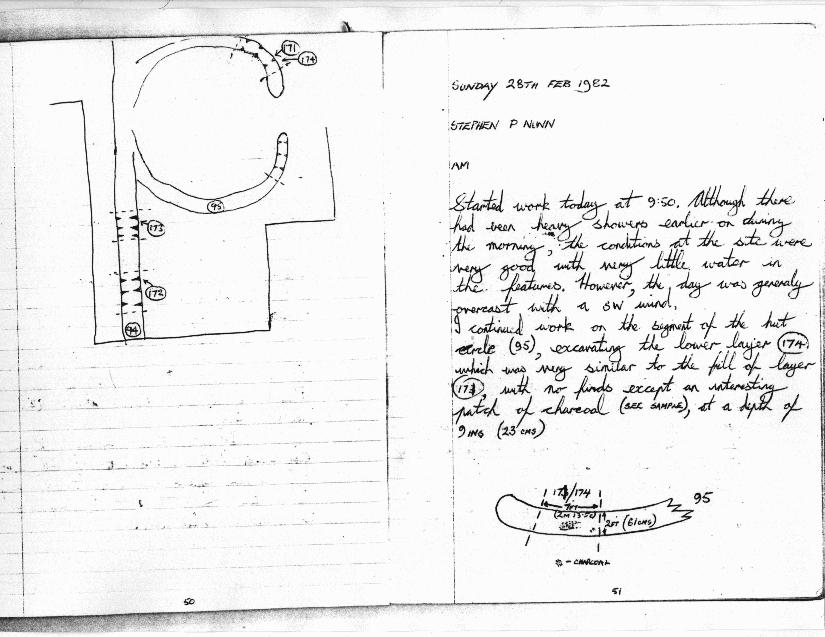 171
174
95
173
172
94
50
SUNDAY 28TH FEB 1982
STEPHEN P NUNN
AM
Started work today at 9:50. Although there
had been heavy showers earlier on during
the morning, the conditions at the site were
very good with very little water in
the features. However, the day was generaly
overcast, with a SW wind.
I continued work on the segment of the hut
circle (95), excavating the lower layer (174)
which was very similar to the fill of layer
with no finds except an interesting
patch of charcoal (SEE SAMPLE), at a depth of
9 INS (23 CMS)
/174
95
7FT
2FT (61CMS)
- CHARCOAL
51